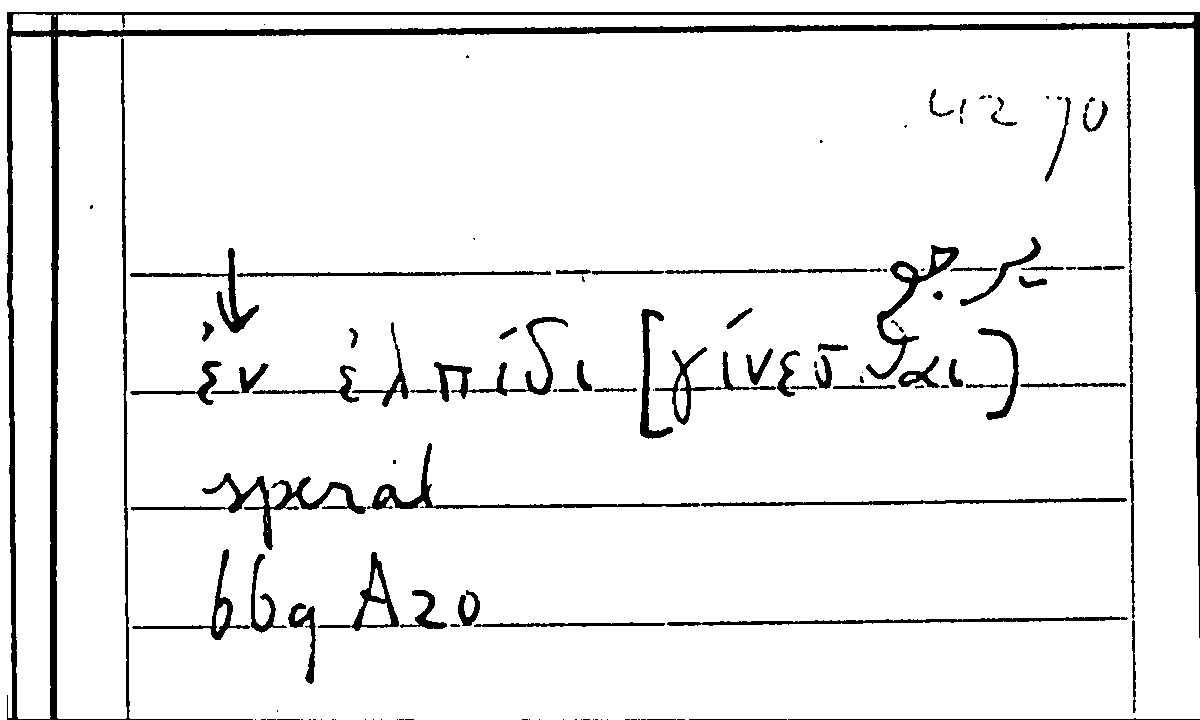 4270
ἐν ἐλπίδι [γίνεσθαι]
sperat
669 A 20